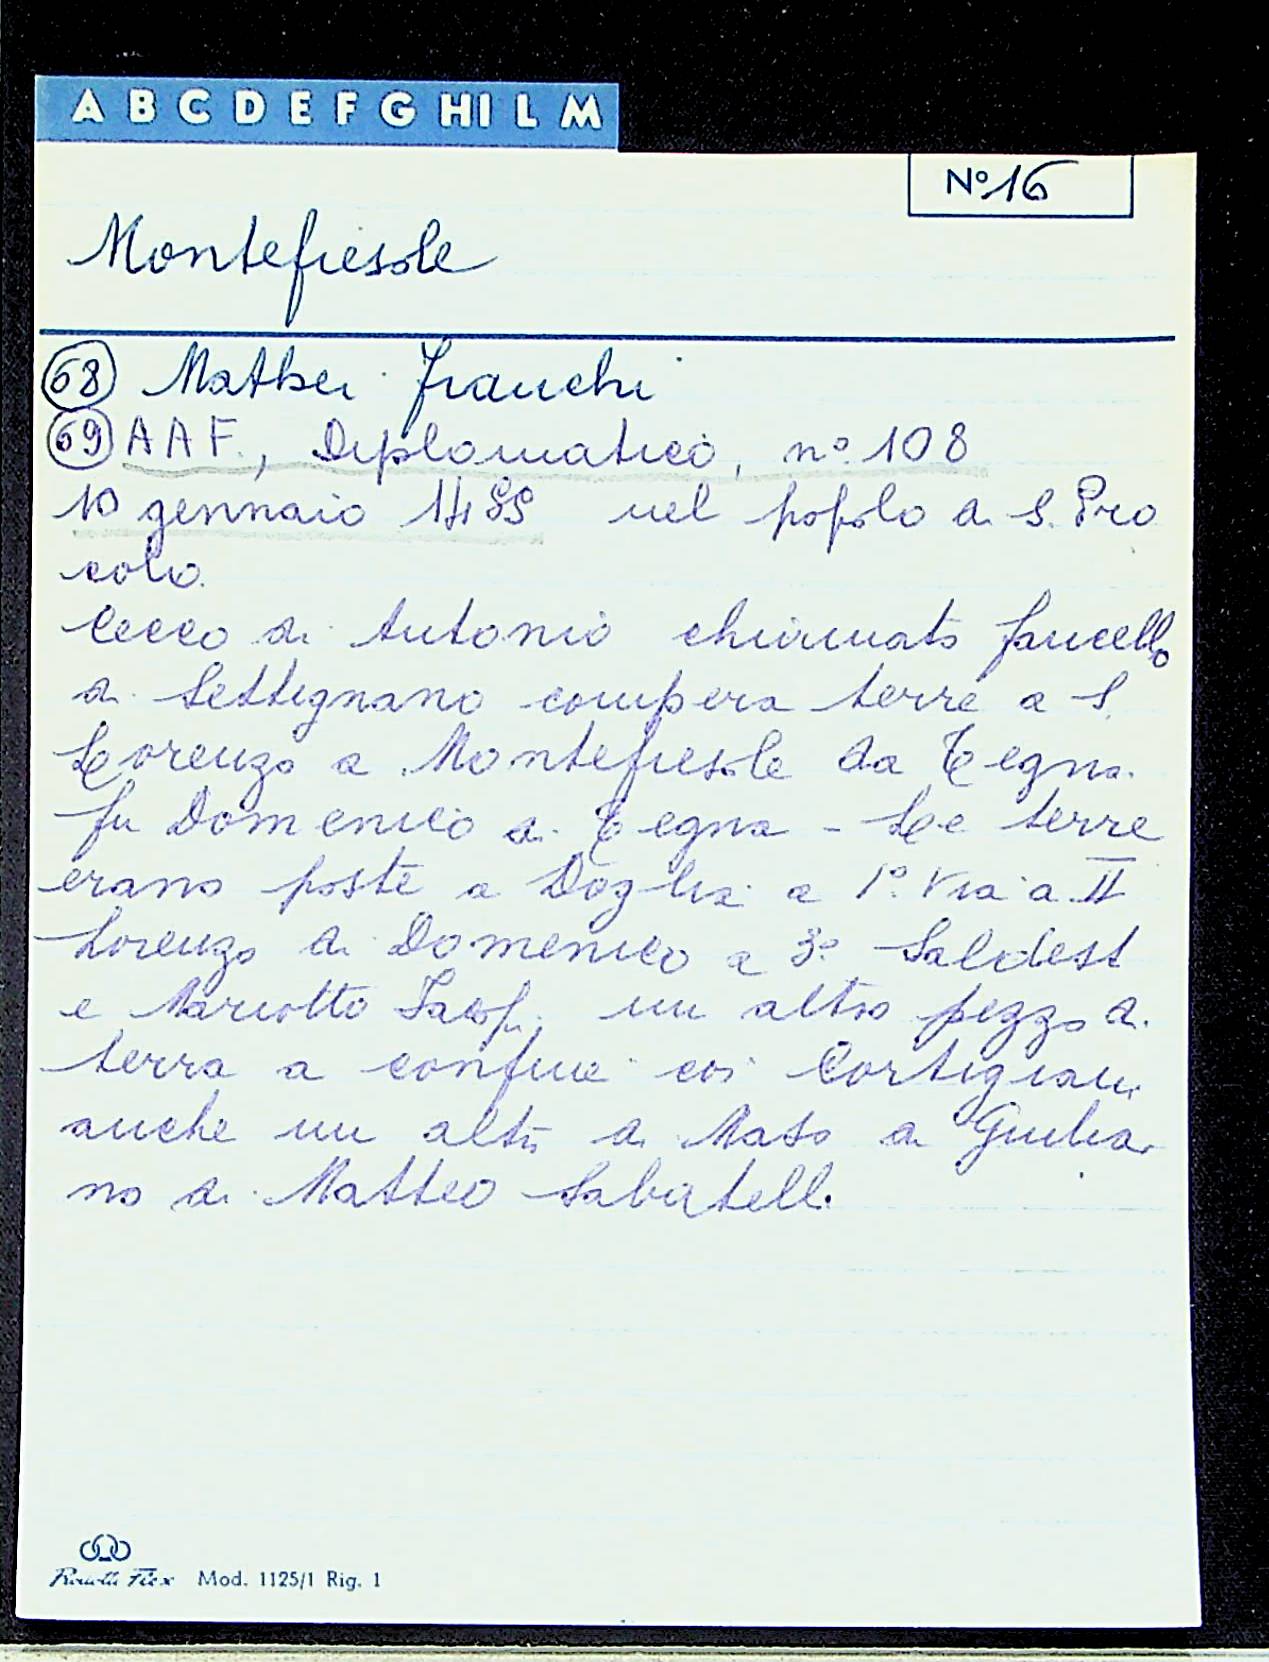 A B C D E F G HI L M
Nº 16
Montefiesole
68 Mathei Franchi
69 A A F., Diplomatico, nº 108
10 gennaio 1489 nel popolo di S. Pro
colo.
Cecco di Antonio chiamato fancello
di Settignano compera terre a S.
Lorenzo a Montefiesole da Tegna
fu Domenico di Tegna - Le terre
erano poste a Doglia a 1º. Via a II
Lorenzo di Domenico a 3º
e Mariotto Jacopi, un altro pezzo di
terra a confine coi Cortigiani
anche un altro di Maso di Giulia
no di Matteo Sabatelli.
Mod. 1125/1 Rig. 1